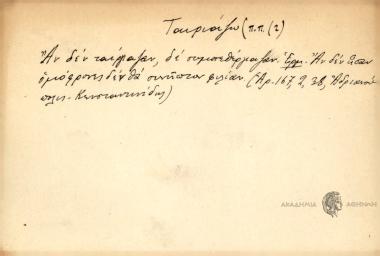 Ταιριάζω (π.π. (2)
Ἂν δὲν ταίριαζαν, δὲ συμπεθέριαζαν. Ἑρμ. Ἂν δὲν ἦσαν
ὁμόφρονες δὲν θὰ συνῆπτον φιλίαν. (Ἀρ. 167, 2, 38, Ἀδριανού
πολις - Κωνσταντινίδης)
ΑΚΑΔΗΜΙΑ ΑΘΗΝΩΝ